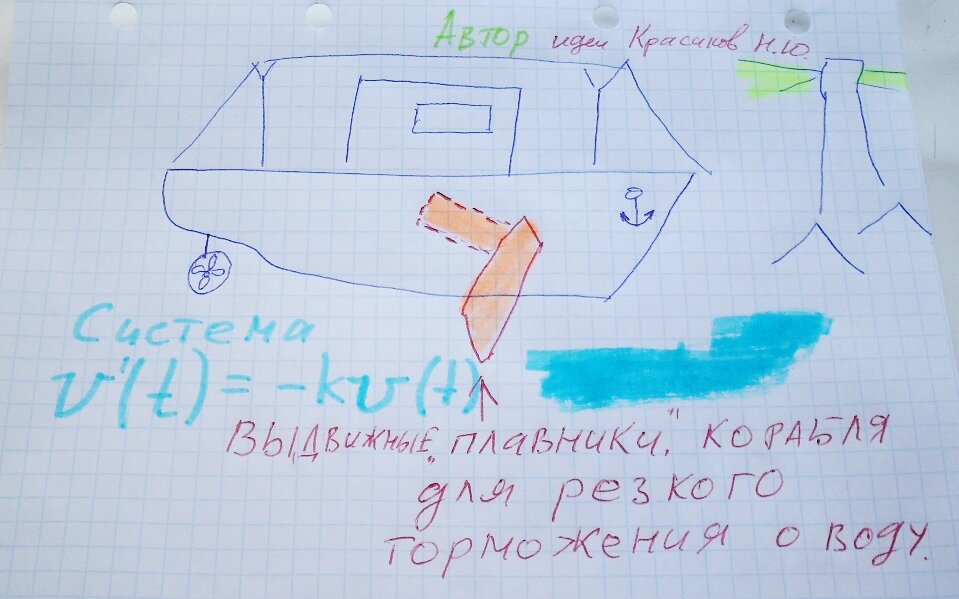 Автор идеи Красиков Н.Ю.
Система
v'(t) = -kv(t)
Выдвижные „плавники" корабля
для резкого
торможения о воду.